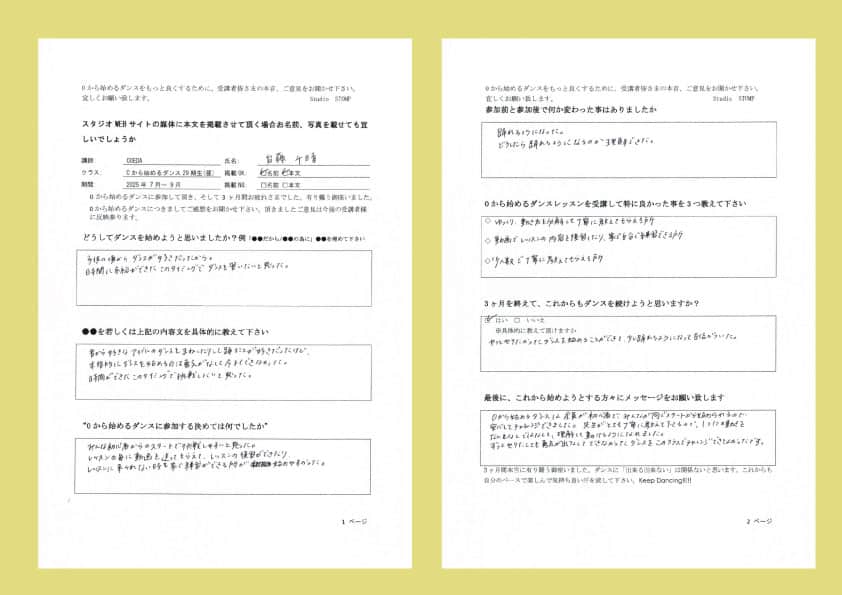 0から始めるダンスをもっと良くするために、受講者皆さまの本音、ご意見をお聞かせ下さい。
宜しくお願い致します。 Studio STOMP
スタジオWEBサイトの媒体に本文を掲載させて頂く場合お名前、写真を載せても宜
しいでしょうか
講師: 氏名:
クラス: 0から始めるダンス29期生(昼) 掲載OK: ☑名前 ☑本文
期間: 2025年 7月~ 9月 掲載NG: □名前 □本文
0から始めるダンスに参加して頂き、そして3ヶ月間お疲れさまでした。有り難う御座いました。
0から始めるダンスにつきましてご感想をお聞かせ下さい。頂きましたご意見は今後の受講者様
に反映参ります。
どうしてダンスを始めようと思いましたか?例「●●だから/●●の為に」●●を埋めて下さい
子供の頃からダンスが好きだったから。
時間に余裕ができたこのタイミングでダンスを習いたいと思った。
●●を若しくは上記の内容文を具体的に教えて下さい
昔から好きなアイドルのダンスをまねしたりして踊ることが好きだったけど、
本格的にダンスを始める自は勇気がなくて今までできなかった。
時間ができたこのタイミングで挑戦したいと思った。
"0から始めるダンスに参加する決めては何でしたか"
みんな初心者からのスタートで挑戦しやすいと思った。
レッスンの毎に動画を送ってもらえて、レッスンの復習ができたり、
レッスンに来られない時も家で練習ができる所が始めやすかった。
1 ページ
0から始めるダンスをもっと良くするために、受講者皆さまの本音、ご意見をお聞かせ下さい。
宜しくお願い致します。 Studio STOMP
参加前と参加後で何か変わった事はありましたか
踊れるようになった。
どうしたら踊れるようになるのか理解できた。
0から始めるダンスレッスンを受講して特に良かった事を3つ教えて下さい
◇ゆっくり、動きを分解して丁寧に教えてもらえる所
◇動画でレッスンの内容を復習したり、家で自分で練習できる所
◇少人数で丁寧に教えてもらえる所
3ヶ月を終えて、これからもダンスを続けようと思いますか?
☑はい □ いいえ
※具体的に教えて頂けますか
やってみたかったダンスを始めることができて、少し踊れるようになって自信がついた。
最後に、これから始めようとする方々にメッセージをお願い致します
0から始めるダンスは全員が初心者で、みんなが同じスタートから始められるので
安心してチャレンジできました。先生がとても丁寧に教えて下さるので、1つ1つの動きを
理解して動けるようになれました。
ずっとやりたくても勇気が出なくてできなかったダンスをこのクラスでチャレンジできてよかったです。
3ヶ月間本当に有り難う御座いました。ダンスに「出来る出来ない」は関係ないと思います。これからも
自分のペースで楽しんで気持ち良い汗を流して下さい。Keep Dancing!!!
2 ページ